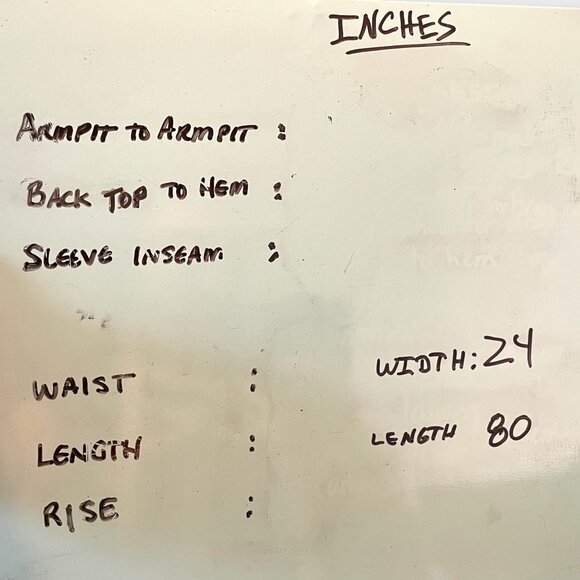 INCHES
ARMPIT TO ARMPIT :
BACK TOP TO HEM :
SLEEVE INSEAM :
WAIST : WIDTH: 24
LENGTH : LENGTH 80
RISE :